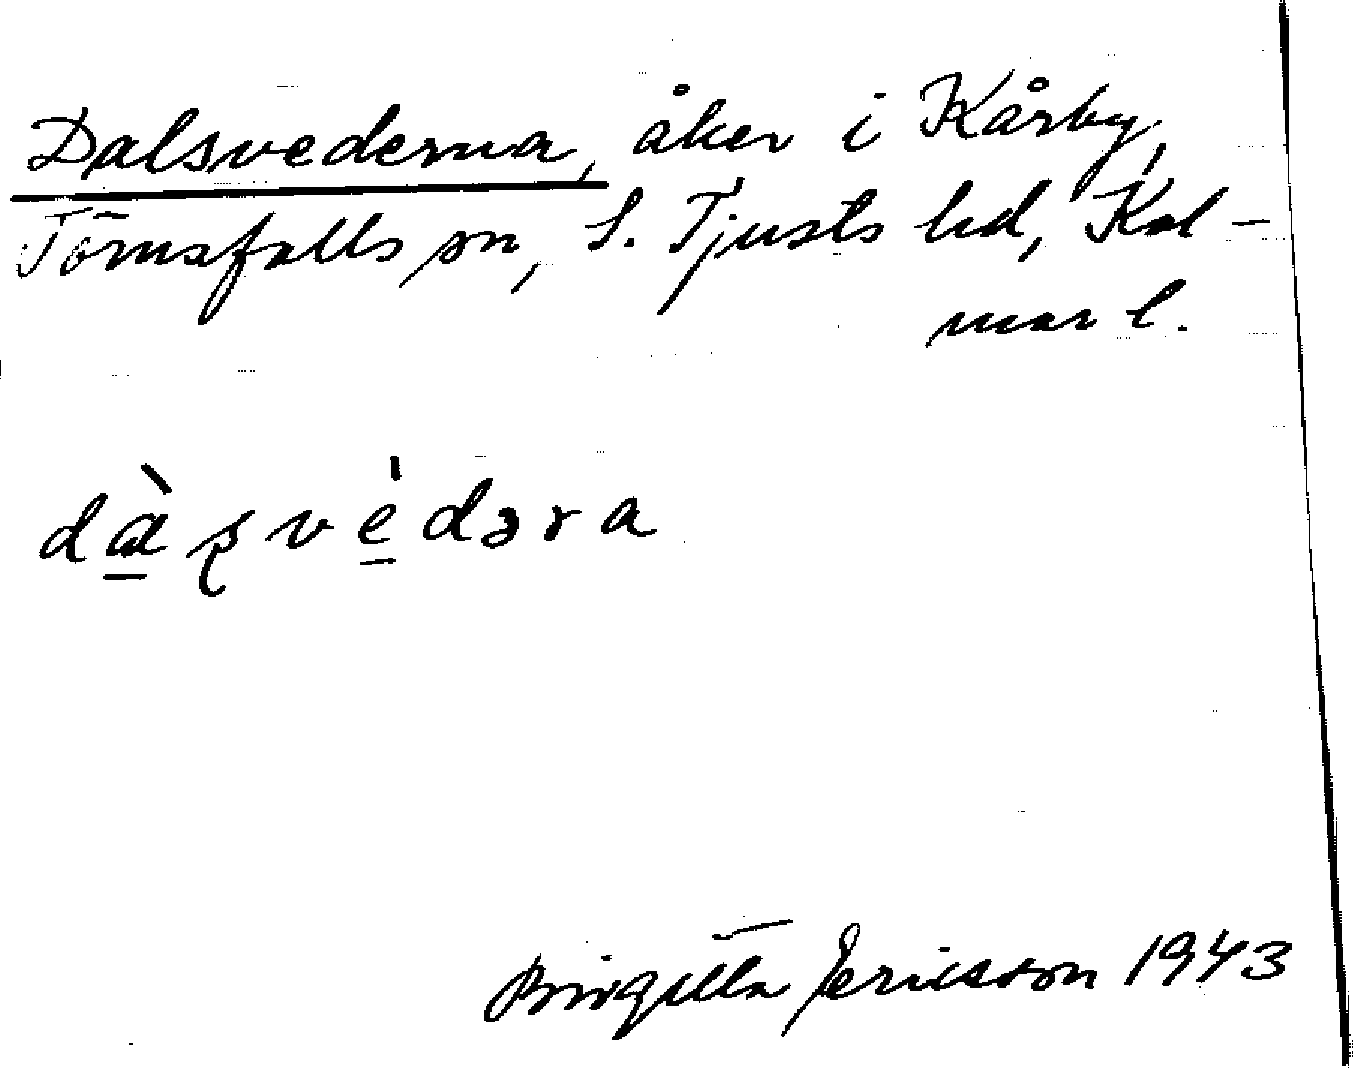 Dalsvederna, åker i Kårby,
Törnsfalls sn, S. Tjusts hd, Kal-
mar l.
dɑ̀ʂvèdəra
Birgitta Ericsson 1943